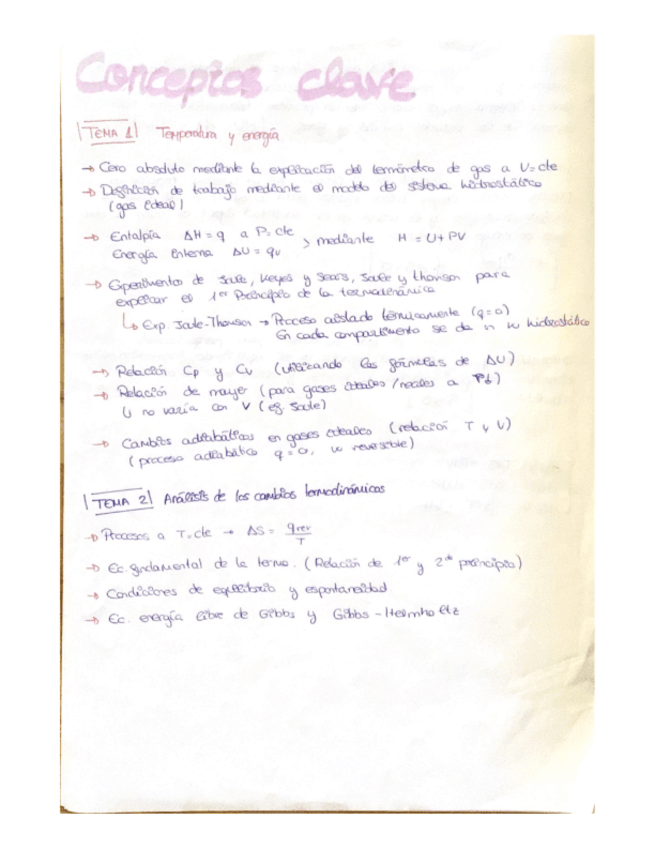 Conceptos clave
TEMA 1 Temperatura y energía
→ Cero absoluto mediante la explicación del termómetro de gas a V=cte
→ Definición de trabajo mediante el modelo del sistema hidrostático
(gas ideal)
→ Entalpía ΔH = q a P=cte > mediante H = U + PV
Energía interna ΔU = qv
→ Experimentos de Joule, Keyes y Sears, Joule y Thomson para
explicar el 1er Principio de la termodinámica
↳ Exp. Joule-Thomson → Proceso aislado térmicamente (q=0)
En cada compartimento se da n w hidrostático
→ Relación Cp y Cv (utilizando las fórmulas de ΔU)
→ Relación de mayer (para gases ideales/reales a P↓)
U no varía con V (ej. Joule)
→ Cambios adiabáticos en gases ideales (relación T y V)
(proceso adiabático q = 0, w reversible)
TEMA 2 Análisis de los cambios termodinámicos
→ Procesos a T=cte → ΔS = qrev/T
→ Ec. fundamental de la termo. (Relación de 1er y 2do principio)
→ Condiciones de equilibrio y espontaneidad
→ Ec. energía libre de Gibbs y Gibbs-Helmholtz